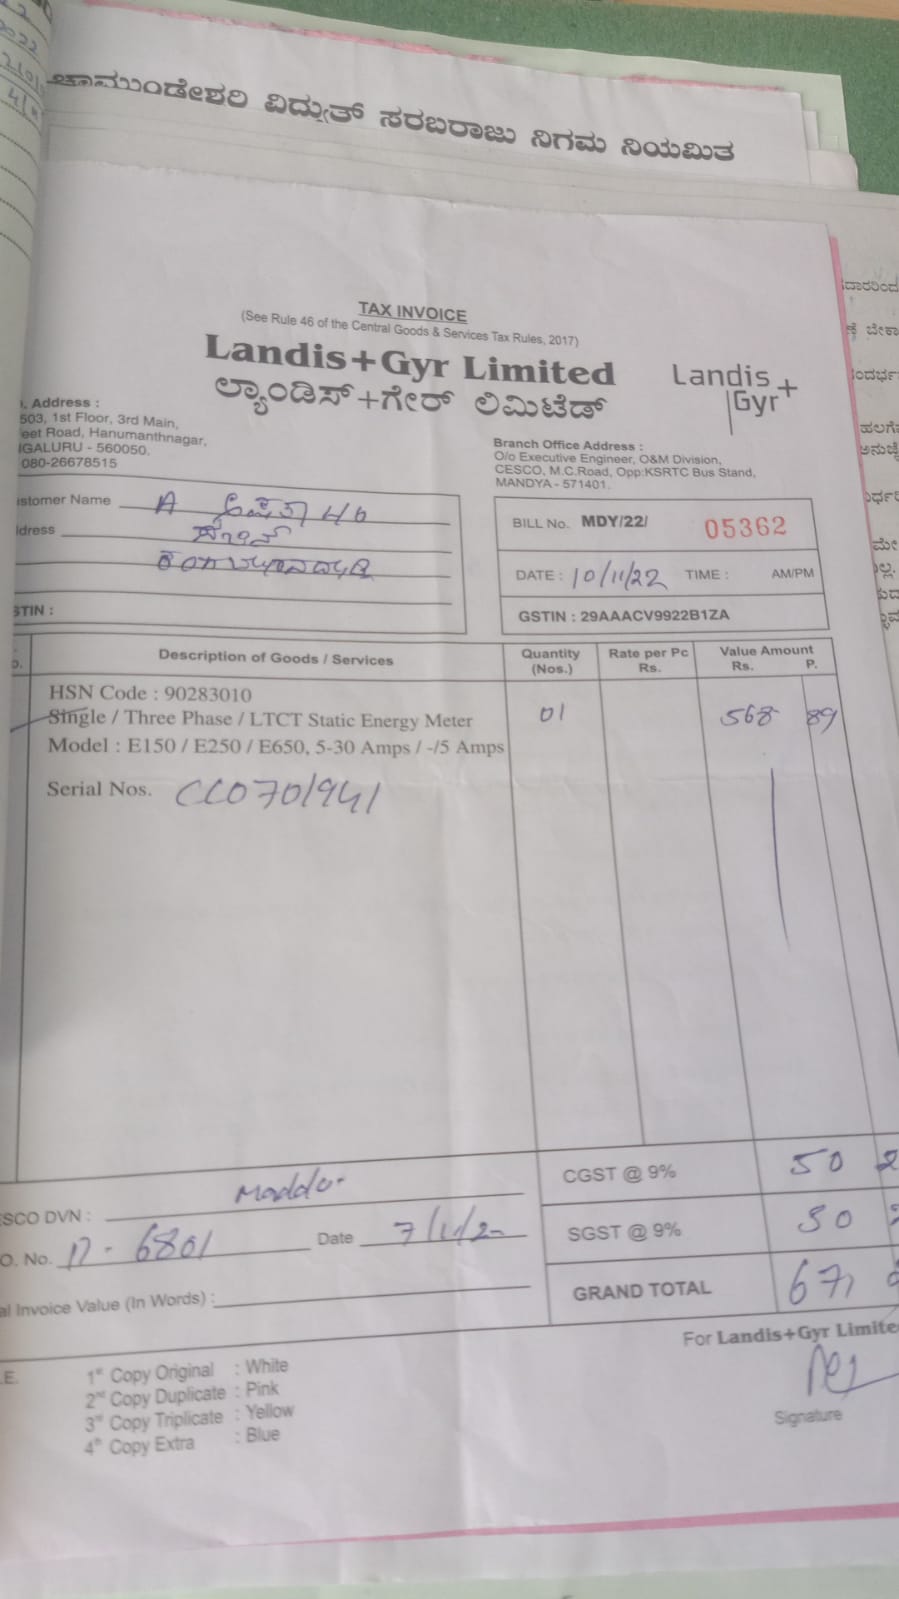 2022
ಚಾಮುಂಡೇಶರಿ ವಿದ್ಯುತ್ ಸರಬರಾಜು ನಿಗಮ ನಿಯಮಿತ
TAX INVOICE
(See Rule 46 of the Central Goods & Services Tax Rules, 2017)
Landis+Gyr Limited
ಲ್ಯಾಂಡಿಸ್+ಗೇರ್ ಲಿಮಿಟೆಡ್
Landis
Gyr+
. Address :
503, 1st Floor, 3rd Main,
eet Road, Hanumanthnagar,
GALURU - 560050.
080-26678515
Branch Office Address :
O/o Executive Engineer, O&M Division,
CESCO, M.C.Road, Opp:KSRTC Bus Stand,
MANDYA - 571401.
stomer Name A
ddress
STIN :
BILL No. MDY/22/ 05362
DATE : 10/11/22 TIME : AM/PM
GSTIN : 29AAACV9922B1ZA
Description of Goods / Services Quantity (Nos.) Rate per Pc Rs. Value Amount Rs. P.
HSN Code : 90283010
Single / Three Phase / LTCT Static Energy Meter 01 568 89
Model : E150 / E250 / E650, 5-30 Amps / -/5 Amps
Serial Nos. CC0701941
CGST @ 9% 50
SCO DVN : Maddur
SGST @ 9% 50
O. No. 17-6801 Date 7/11/22
GRAND TOTAL 671
al Invoice Value (In Words) :
For Landis+Gyr Limite
.E. 1st Copy Original : White
2nd Copy Duplicate : Pink
3rd Copy Triplicate : Yellow
4th Copy Extra : Blue
Signature